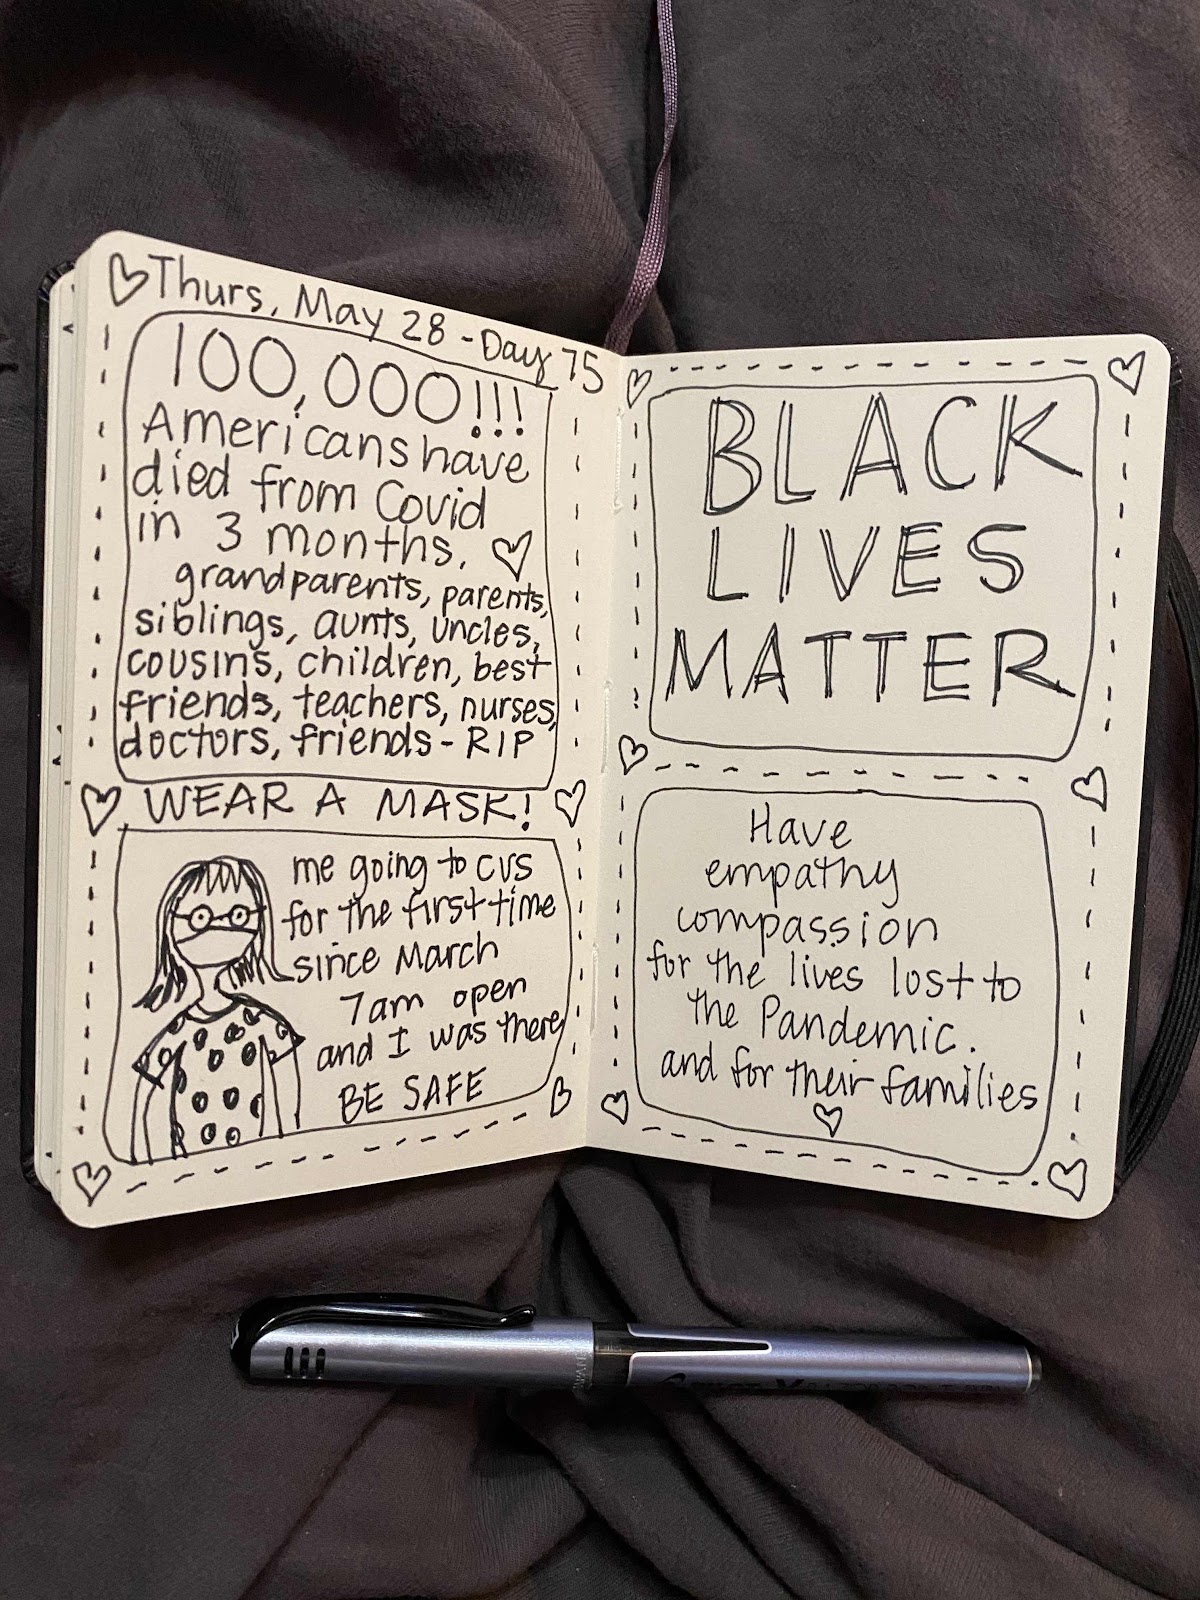 Thurs, May 28 - Day 75
100,000!!!
Americans have
died from Covid
in 3 months.
grandparents, parents,
siblings, aunts, uncles,
cousins, children, best
friends, teachers, nurses,
doctors, friends - RIP
WEAR A MASK!
me going to CVS
for the first time
since March
7am open
and I was there
BE SAFE
BLACK
LIVES
MATTER
Have
empathy
compassion
for the lives lost to
the Pandemic.
and for their families